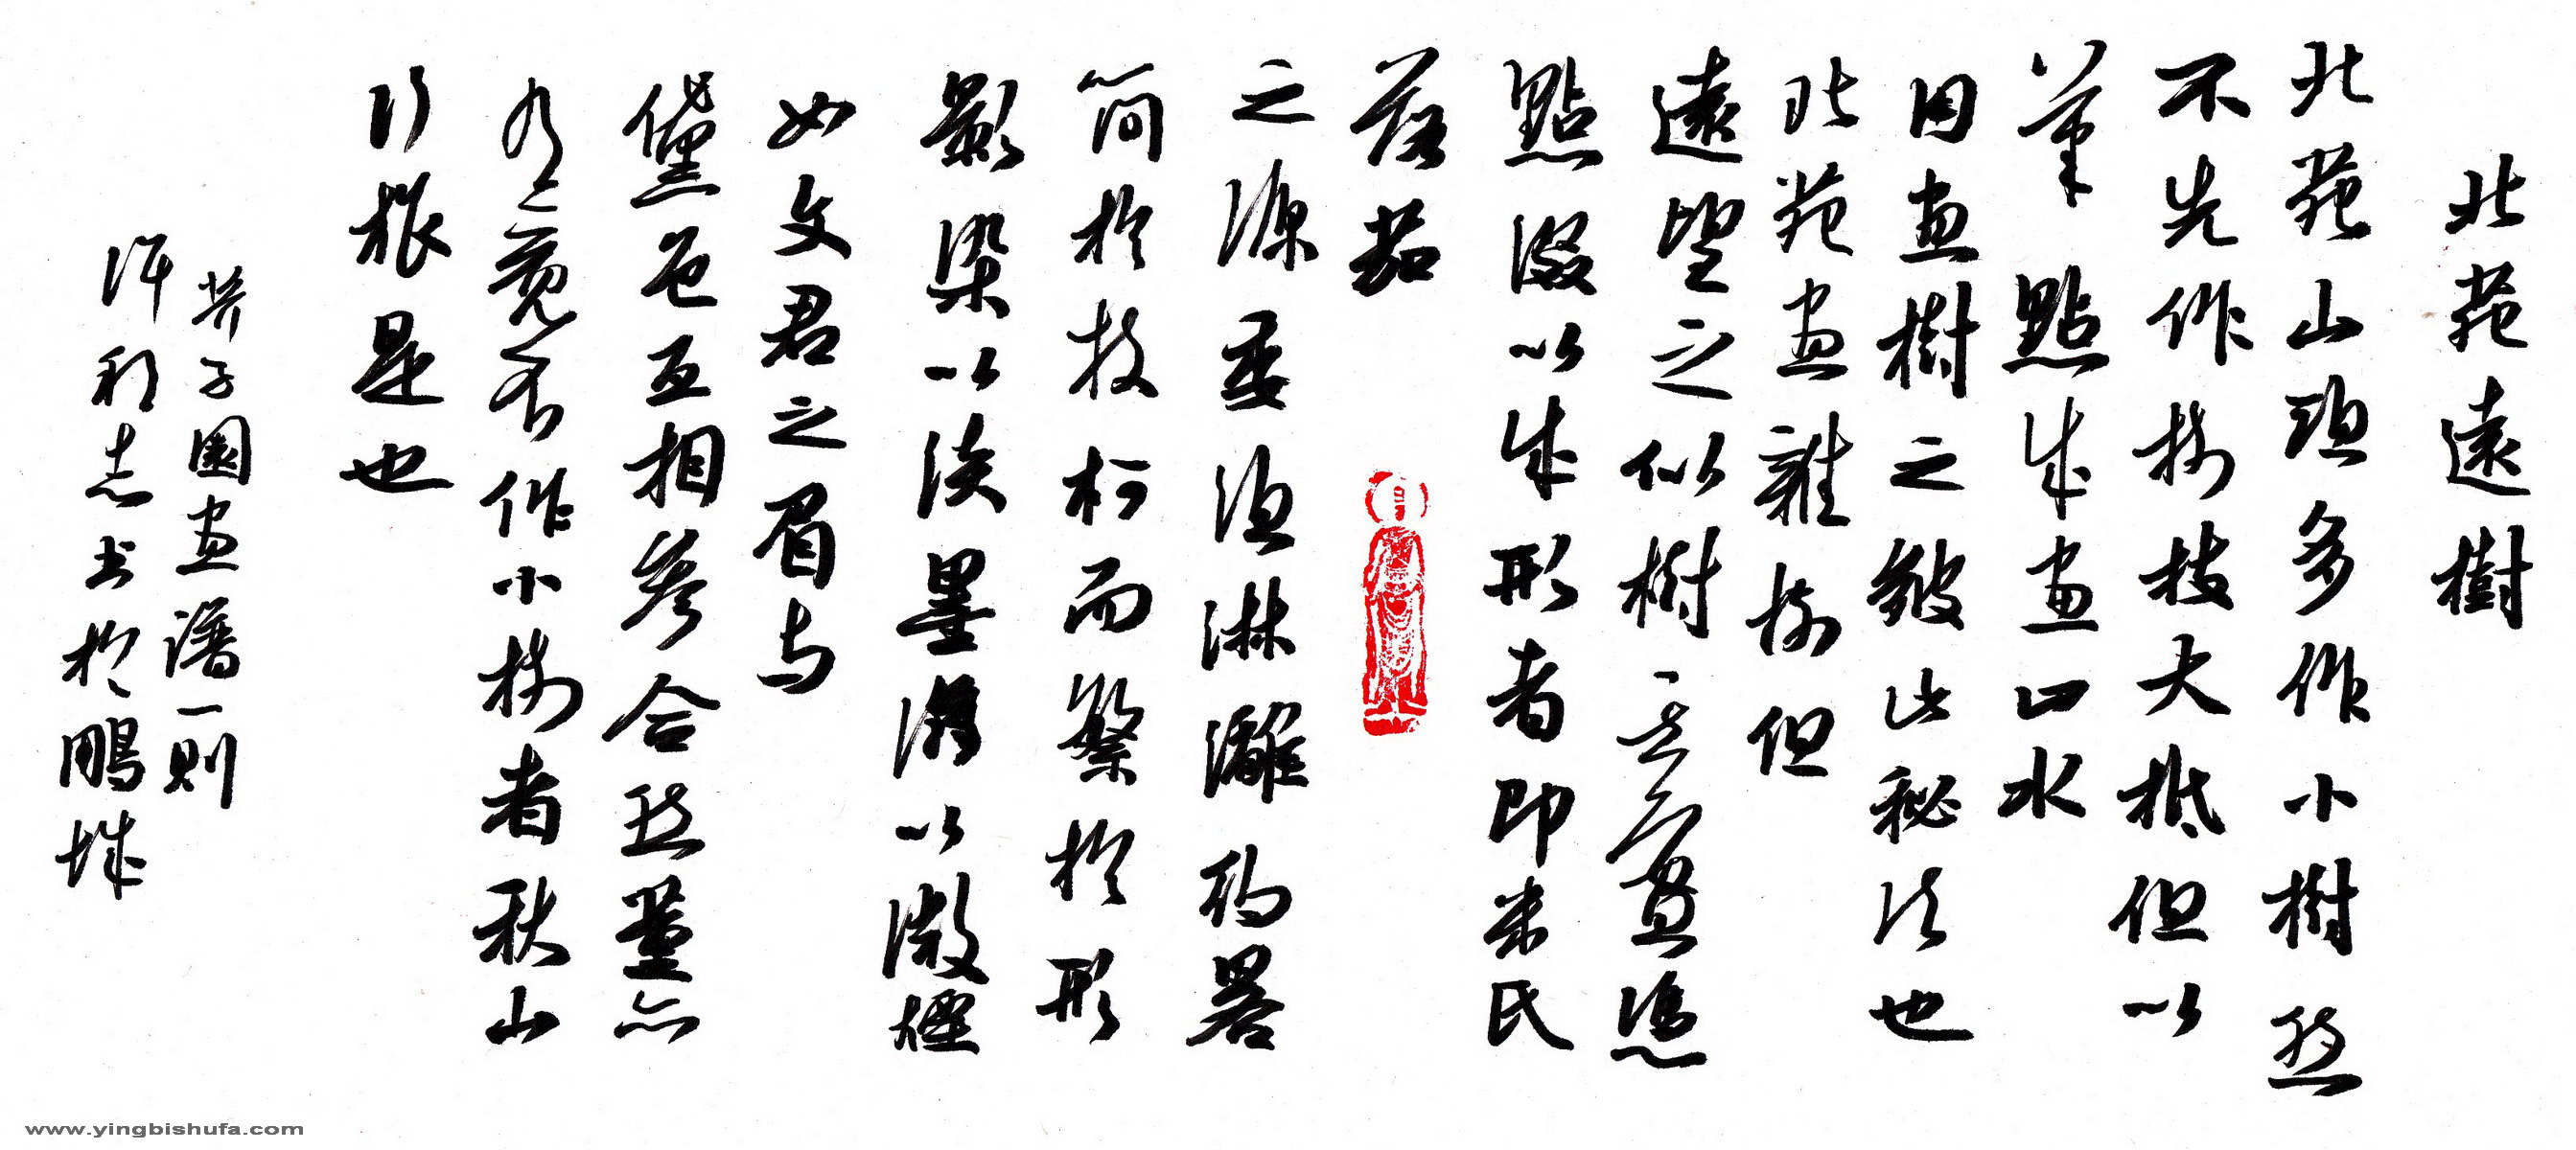 北苑遠樹
北苑山頭多作小樹然
不先作樹枝大抵但以
筆點成畫山水
用畫樹之皴此秘法也
北苑畫雜樹但
遠望之似樹其實憑
點綴以成形者即米氏
落茄
之源委須淋灕約畧
簡於枝柯而繁於形
影染以淡墨以微煙
如文君之眉与
黛色互相參合然董亦
有竟不作小樹者秋山
行旅是也
芥子園畫譜一則
許利志书於鵬城
www.yingbishufa.com